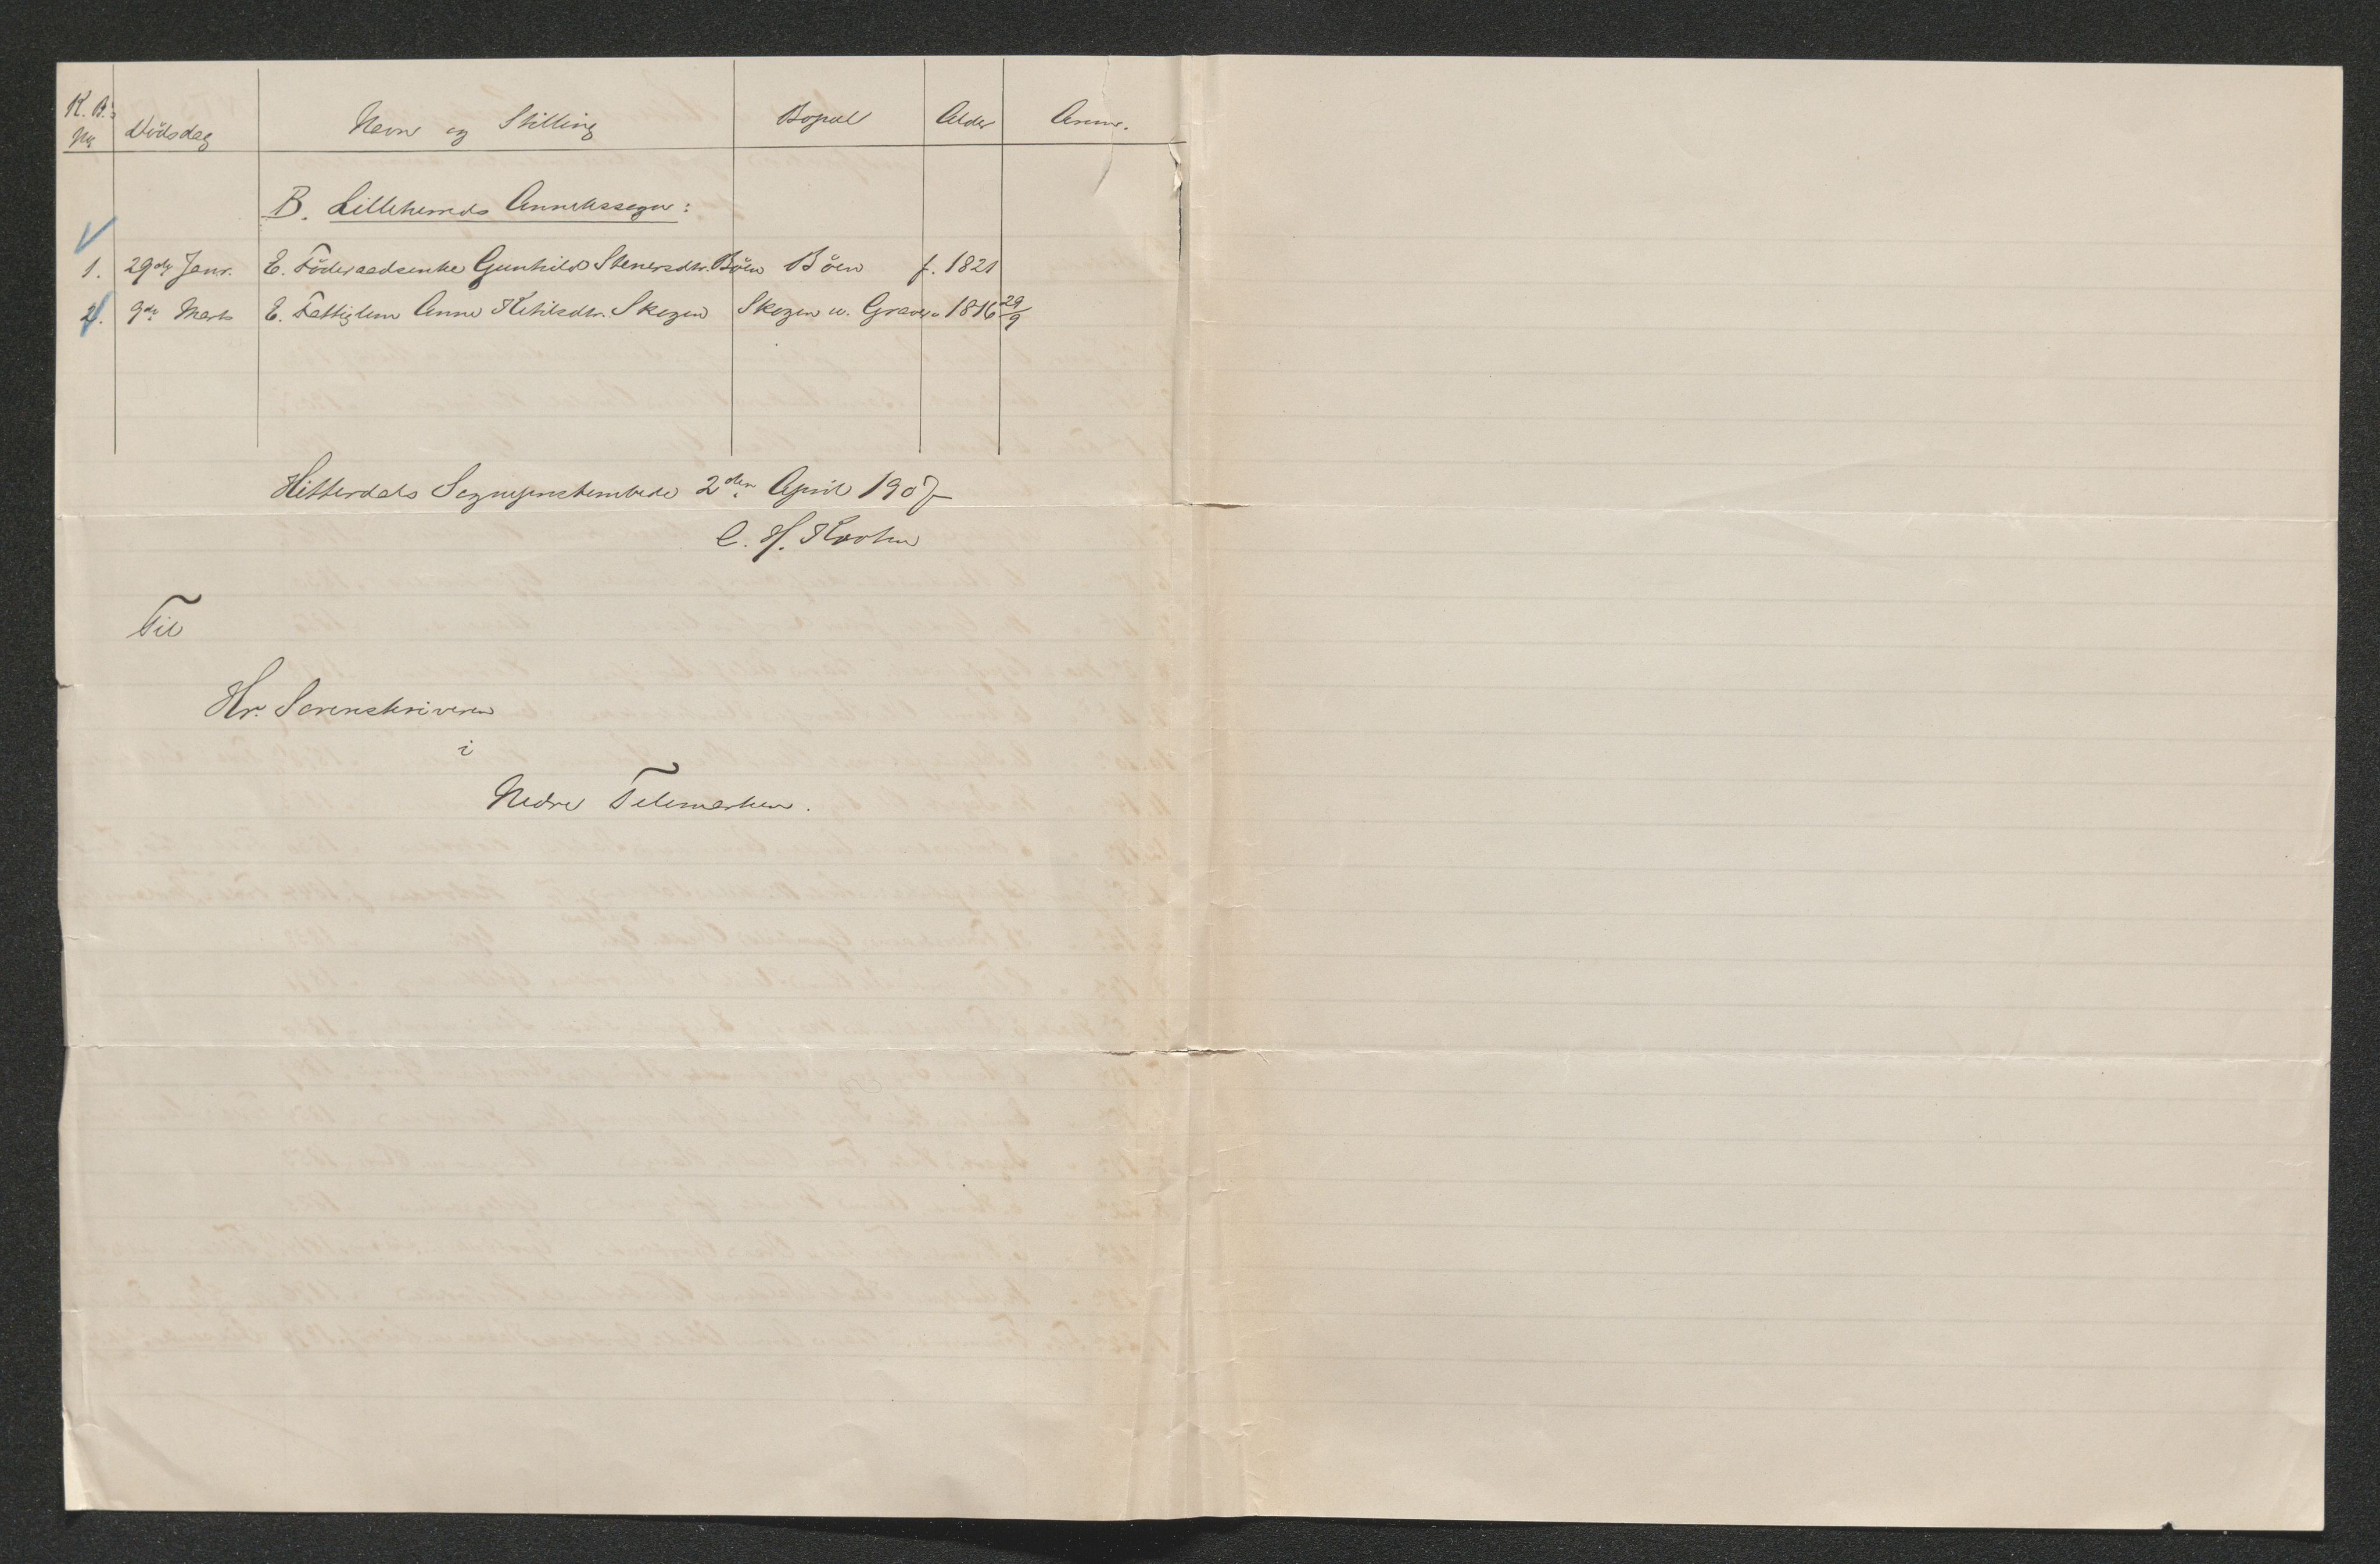 K. B.s No Dödsdag Navn og Stilling Bopæl Alder Anm.
B. Lilleherreds Annekssogn:
1. 29de Janr. E. Föderaadsenke Gunhild Stenersdtr. Böen Böen f. 1821
2. 9de Marts E. Fattiglem Anne Ketilsdtr. Skogen Skogen u. Grave " 1816 29/9
Hitterdals Sogneprestembede 2den April 1907
C. H.
Til
Hr. Sorenskriveren
i
Nedre Telemarken.